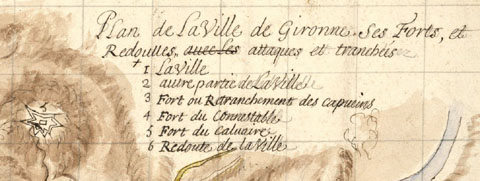 Plan de La Ville de Gironne Ses Forts, et
Redoutles, avec Les attaques et tranchéis
+ 1 La Ville
2 autre partie de La Ville
3 Fort ou Retranchement des capucins
4 Fort du Connestable
5 Fort du Caluaire
6 Redoute de la Ville
5